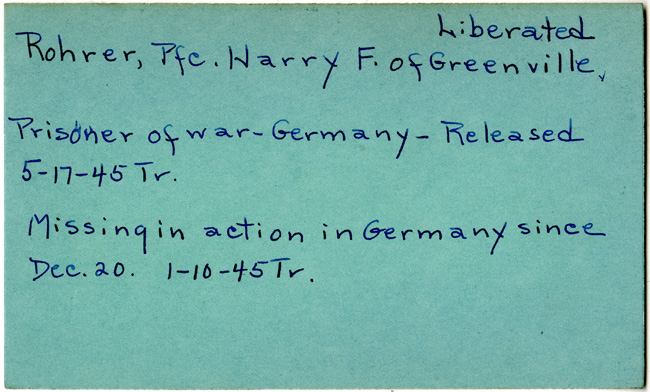 Liberated
Rohrer, Pfc. Harry F. of Greenville,
Prisoner of war - Germany - Released
5-17-45 Tr.
Missing in action in Germany since
Dec. 20. 1-10-45 Tr.